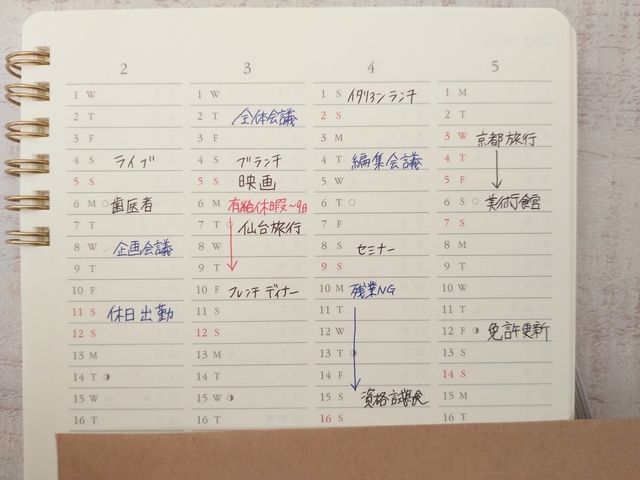 2
1 W
2 T
3 F
4 S ライブ
5 S
6 M 歯医者
7 T
8 W 企画会議
9 T
10 F
11 S 休日出勤
12 S
13 M
14 T
15 W
16 T
3
1 W
2 T 全体会議
3 F
4 S ブランチ
5 S 映画
6 M 有給休暇~9日
7 T 仙台旅行
8 W
9 T
10 F フレンチディナー
11 S
12 S
13 M
14 T
15 W
16 T
4
1 S イタリアンランチ
2 S
3 M
4 T 編集会議
5 W
6 T
7 F
8 S セミナー
9 S
10 M 残業NG
11 T
12 W
13 T
14 F
15 S 資格試験
16 S
5
1 M
2 T
3 W 京都旅行
4 T
5 F
6 S
7 S
8 M
9 T
10 W
11 T
12 F 免許更新
13 S
14 S
15 M
16 T